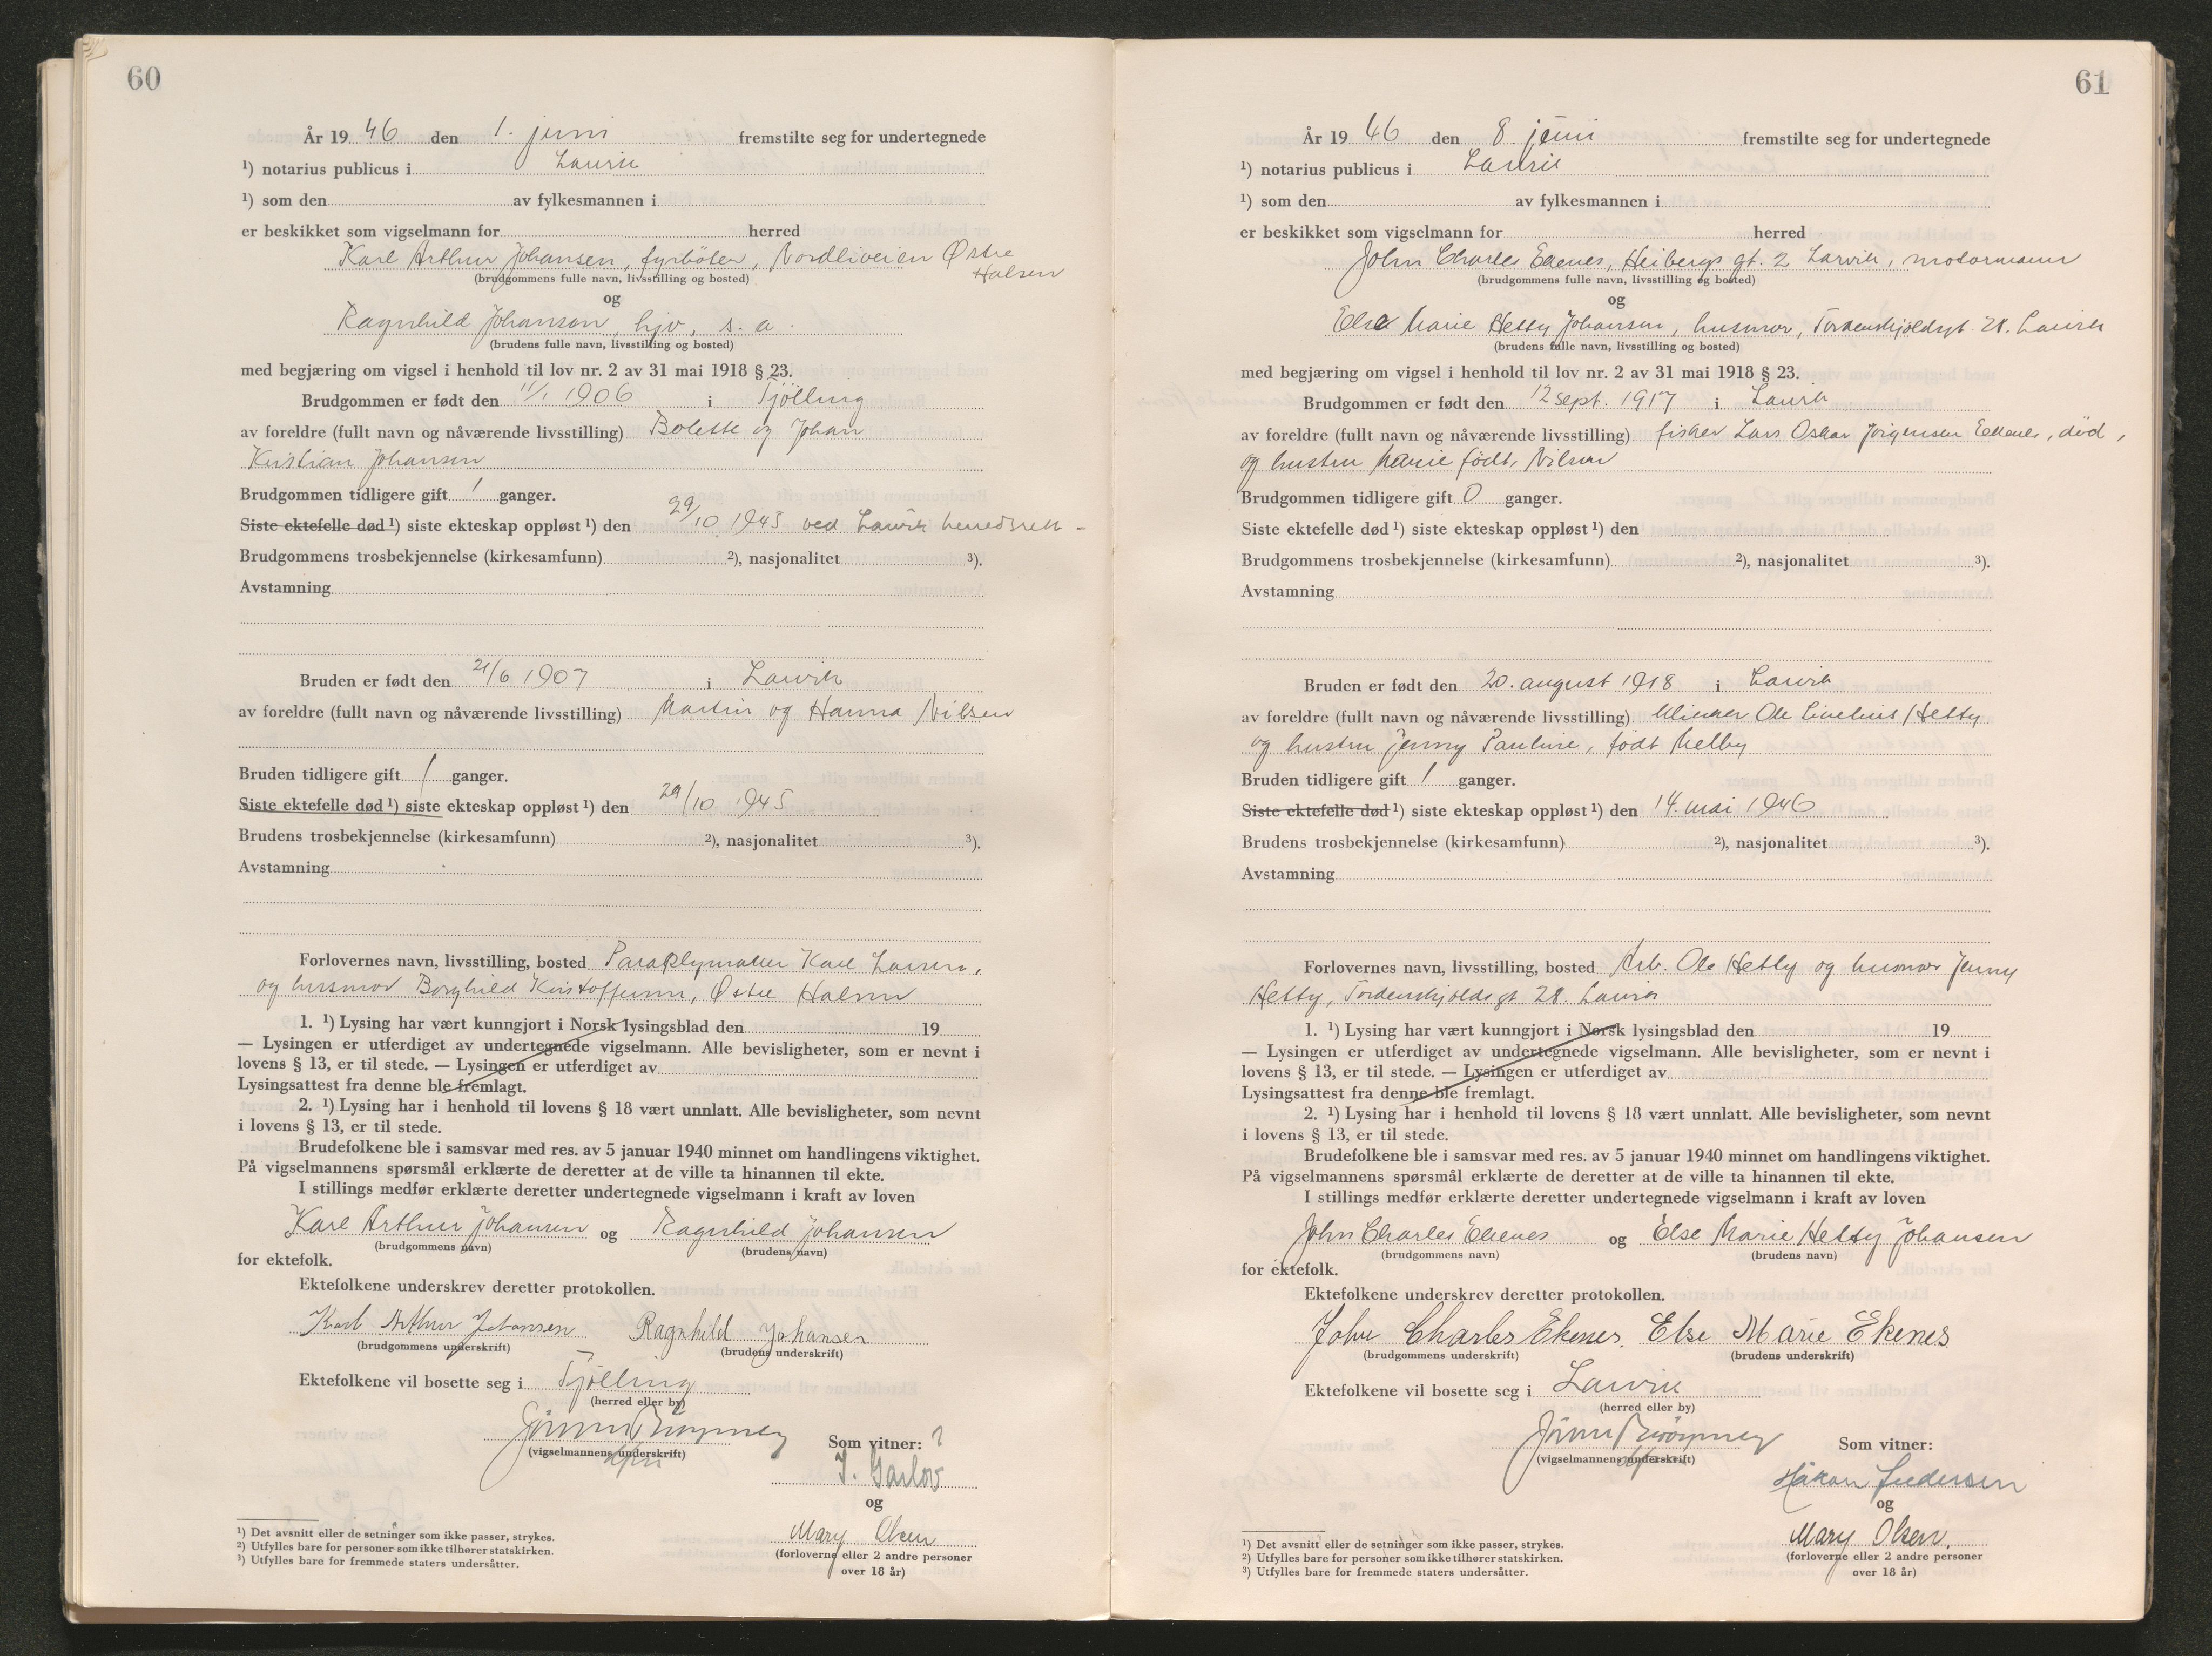 60
År 19 46 den 1. juni fremstilte seg for undertegnede
¹) notarius publicus i Larvik
¹) som den av fylkesmannen i
er beskikket som vigselmann for herred
Karl Arthur Johansen, fyrböter, Nordliveien Østre
Halsen
(brudgommens fulle navn, livsstilling og bosted)
og
Ragnhild Johansen, hjv., s. a.
(brudens fulle navn, livsstilling og bosted)
med begjæring om vigsel i henhold til lov nr. 2 av 31 mai 1918 § 23.
Brudgommen er født den 11/1 1906 i Tjölling
av foreldre (fullt navn og nåværende livsstilling) Bolette og Johan
Kristian Johansen
Brudgommen tidligere gift 1 ganger.
Siste ektefelle død ¹) siste ekteskap oppløst ¹) den 29/10 1945 ved Larvik herredsrett -
Brudgommens trosbekjennelse (kirkesamfunn) ²), nasjonalitet ³).
Avstamning
Bruden er født den 21/6 1907 i Larvik
av foreldre (fullt navn og nåværende livsstilling) Martin og Hanna Nilsen
Bruden tidligere gift 1 ganger.
Siste ektefelle død ¹) siste ekteskap oppløst ¹) den 29/10 1945
Brudens trosbekjennelse (kirkesamfunn) ²), nasjonalitet ³).
Avstamning
Forlovernes navn, livsstilling, bosted Paraplymaker Karl Larsen,
og husmor Borghild Kristoffersen, Østre Halsen
1. ¹) Lysing har vært kunngjort i Norsk lysingsblad den 19
— Lysingen er utferdiget av undertegnede vigselmann. Alle bevisligheter, som er nevnt i
lovens § 13, er til stede. — Lysingen er utferdiget av
Lysingsattest fra denne ble fremlagt.
2. ¹) Lysing har i henhold til lovens § 18 vært unnlatt. Alle bevisligheter, som nevnt
i lovens § 13, er til stede.
Brudefolkene ble i samsvar med res. av 5 januar 1940 minnet om handlingens viktighet.
På vigselmannens spørsmål erklærte de deretter at de ville ta hinannen til ekte.
I stillings medfør erklærte deretter undertegnede vigselmann i kraft av loven
Karl Arthur Johansen og Ragnhild Johansen
(brudgommens navn) (brudens navn)
for ektefolk.
Ektefolkene underskrev deretter protokollen.
Karl Arthur Johansen Ragnhild Johansen
(brudgommens underskrift) (brudens underskrift)
Ektefolkene vil bosette seg i Tjölling
(herred eller by)
(vigselmannens underskrift)
Som vitner:
J. Garlov
og
Mary Olsen
(forloverne eller 2 andre personer
over 18 år)
¹) Det avsnitt eller de setninger som ikke passer, strykes.
²) Utfylles bare for personer som ikke tilhører statskirken.
³) Utfylles bare for fremmede staters undersåtter.
61
År 19 46 den 8 juni fremstilte seg for undertegnede
¹) notarius publicus i Larvik
¹) som den av fylkesmannen i
er beskikket som vigselmann for herred
John Charles Ekenes, Heibergs gt. 2 Larvik, motormann
(brudgommens fulle navn, livsstilling og bosted)
og
Else Marie Hetty Johansen, husmor, Tordenskjoldsgt 28. Larvik
(brudens fulle navn, livsstilling og bosted)
med begjæring om vigsel i henhold til lov nr. 2 av 31 mai 1918 § 23.
Brudgommen er født den 12 sept. 1917 i Larvik
av foreldre (fullt navn og nåværende livsstilling) fisker Lars Oskar Jørgensen Ekenes, död,
og hustru Marie födt Nilsen
Brudgommen tidligere gift 0 ganger.
Siste ektefelle død ¹) siste ekteskap oppløst ¹) den
Brudgommens trosbekjennelse (kirkesamfunn) ²), nasjonalitet ³).
Avstamning
Bruden er født den 20. august 1918 i Larvik
av foreldre (fullt navn og nåværende livsstilling) Ole Hetty
og hustru Jenny Pauline, födt Melby
Bruden tidligere gift 1 ganger.
Siste ektefelle død ¹) siste ekteskap oppløst ¹) den 14. mai 1946
Brudens trosbekjennelse (kirkesamfunn) ²), nasjonalitet ³).
Avstamning
Forlovernes navn, livsstilling, bosted Arb. Ole Hetty og husmor Jenny
Hetty, Tordenskjolds gt 28. Larvik
1. ¹) Lysing har vært kunngjort i Norsk lysingsblad den 19
— Lysingen er utferdiget av undertegnede vigselmann. Alle bevisligheter, som er nevnt i
lovens § 13, er til stede. — Lysingen er utferdiget av
Lysingsattest fra denne ble fremlagt.
2. ¹) Lysing har i henhold til lovens § 18 vært unnlatt. Alle bevisligheter, som nevnt
i lovens § 13, er til stede.
Brudefolkene ble i samsvar med res. av 5 januar 1940 minnet om handlingens viktighet.
På vigselmannens spørsmål erklærte de deretter at de ville ta hinannen til ekte.
I stillings medfør erklærte deretter undertegnede vigselmann i kraft av loven
John Charles Ekenes og Else Marie Hetty Johansen
(brudgommens navn) (brudens navn)
for ektefolk.
Ektefolkene underskrev deretter protokollen.
John Charles Ekenes. Else Marie Ekenes
(brudgommens underskrift) (brudens underskrift)
Ektefolkene vil bosette seg i Larvik
(herred eller by)
(vigselmannens underskrift)
Som vitner:
Håkon
og
Mary Olsen.
(forloverne eller 2 andre personer
over 18 år)
¹) Det avsnitt eller de setninger som ikke passer, strykes.
²) Utfylles bare for personer som ikke tilhører statskirken.
³) Utfylles bare for fremmede staters undersåtter.